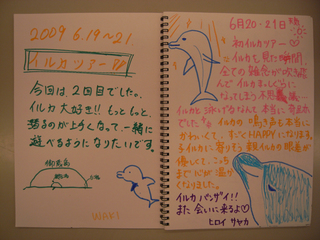 2009 6.19〜21.
イルカツアー
今回は、2回目でした。
イルカ大好き!! もっともっと、
潜るのが上手くなって一緒に
遊べるようになりたいです。
御蔵島
WAKI
6月20・21日
初イルカツアー♡
イルカを見た瞬間、
全ての雑念が吹き飛
んで イルカまっしぐらに
なってしまう不思議…
イルカと泳げるなんて本当に幸せ
でした。イルカの鳴き声も本当に
かわいくて、すごくHAPPYになりました。
子イルカに寄りそう 親イルカの眼差が
優しくて、こっち
まで心が温か
くなりました。
イルカ バンザイ!!
また 会いに来るよ♡
ヒロイ サヤカ